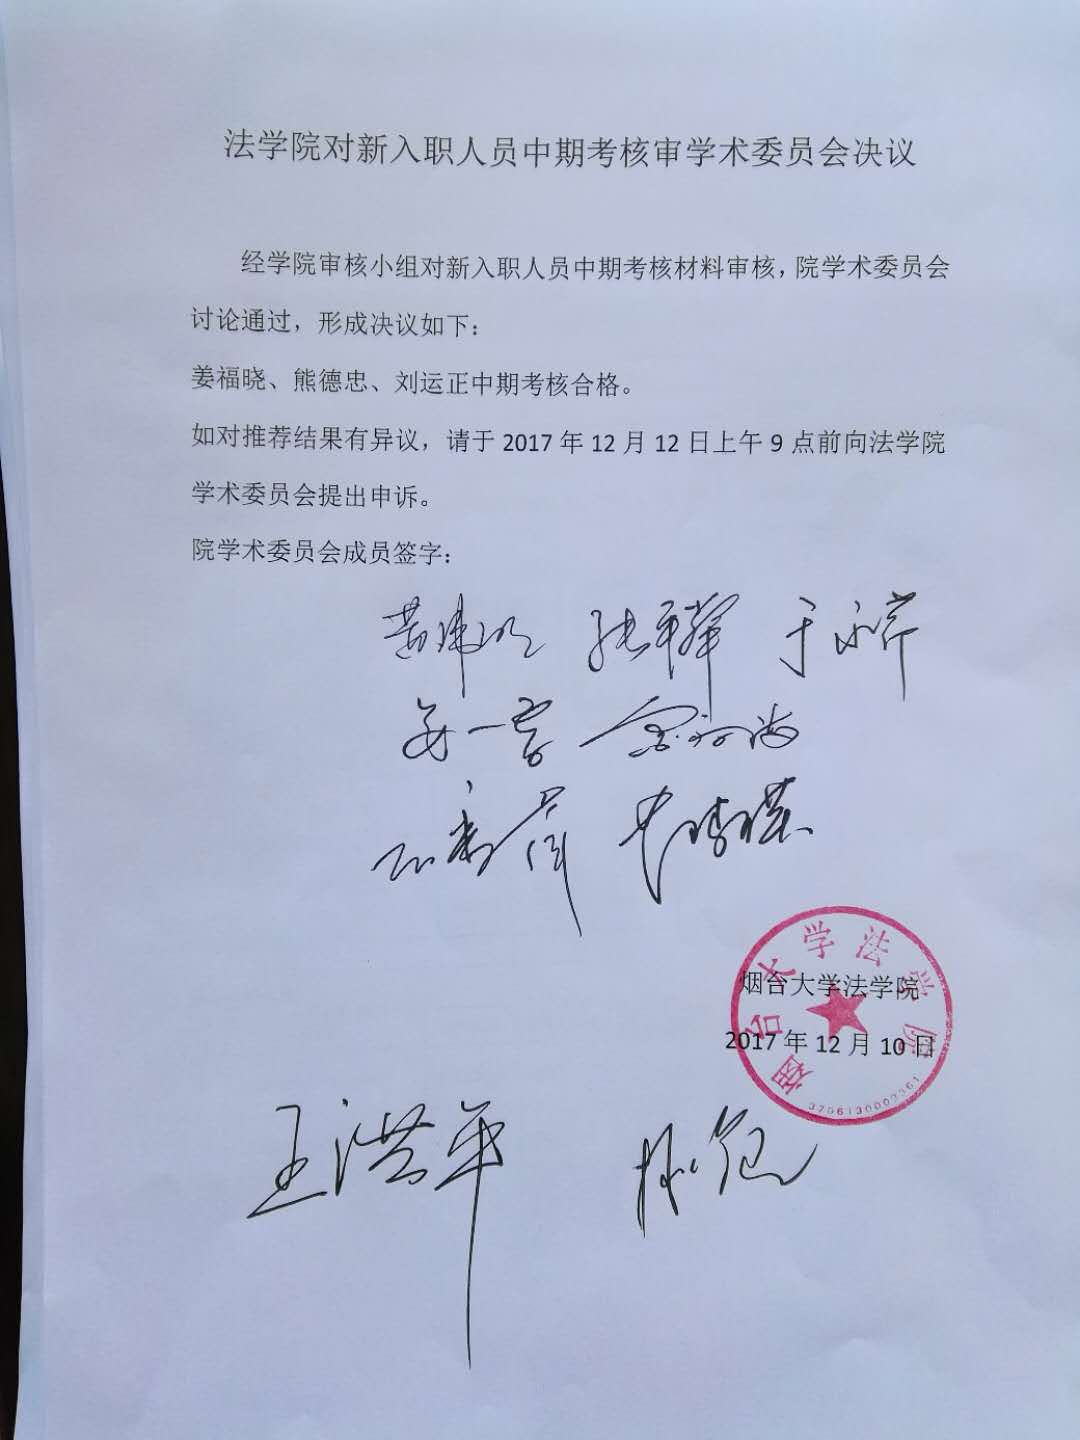 法学院对新入职人员中期考核审学术委员会决议
经学院审核小组对新入职人员中期考核材料审核，院学术委员会
讨论通过，形成决议如下：
姜福晓、熊德忠、刘运正中期考核合格。
如对推荐结果有异议，请于 2017 年 12 月 12 日上午 9 点前向法学院
学术委员会提出申诉。
院学术委员会成员签字：
张平华
烟台大学法学院
烟台大学法学院
2017 年 12 月 10 日
王洪平